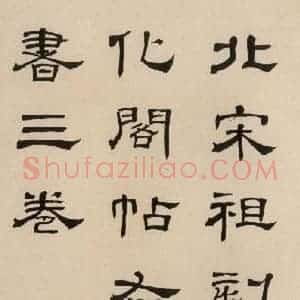 北宋祖刻
化閣帖
書三卷
Shufaziliao.com